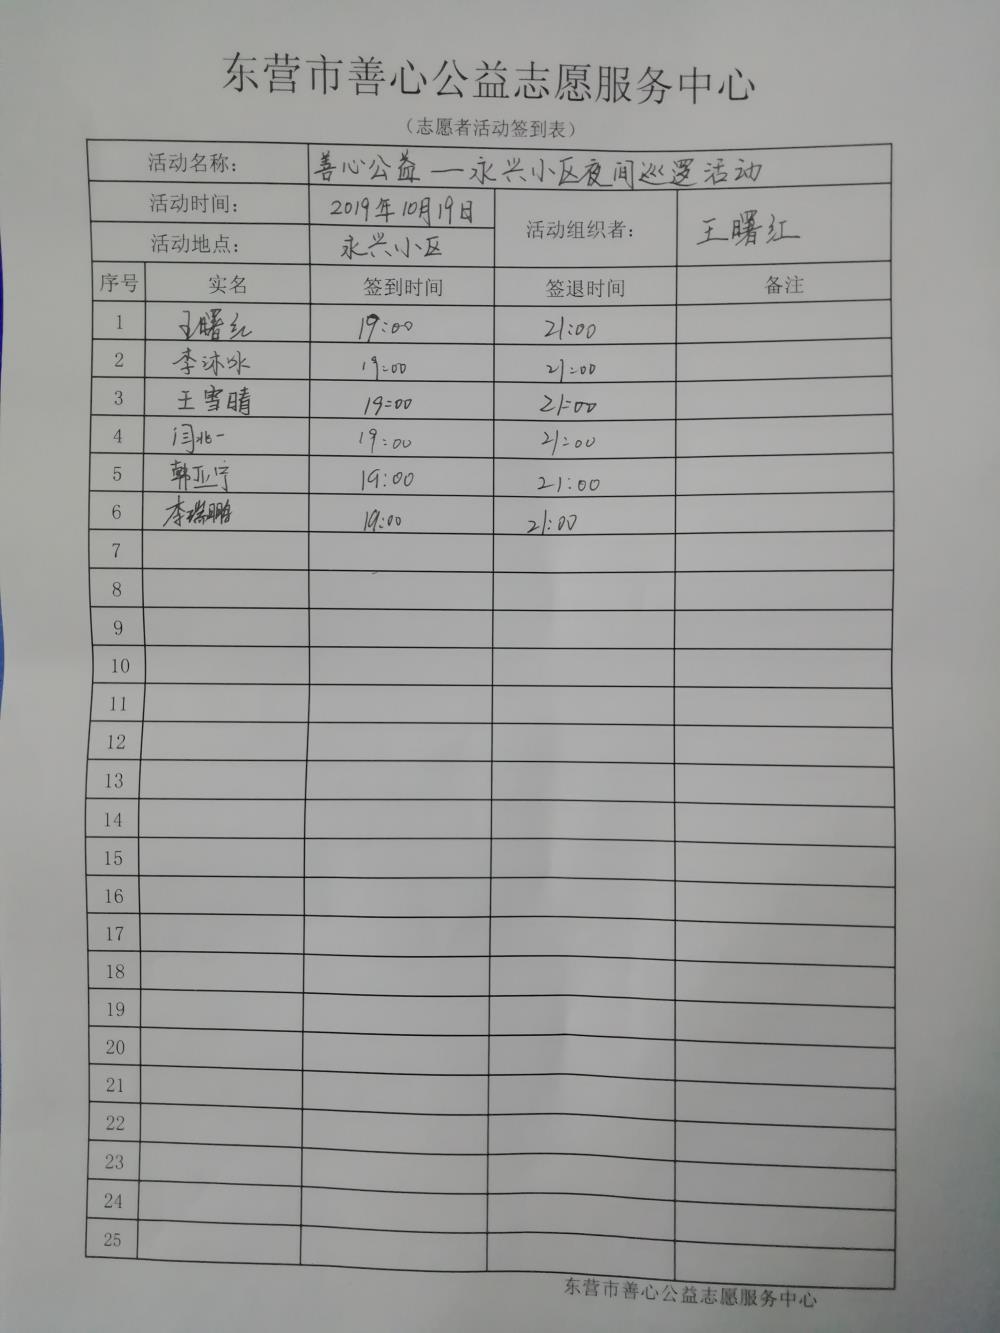 东营市善心公益志愿服务中心
（志愿者活动签到表）
活动名称： 善心公益—永兴小区夜间巡逻活动
活动时间： 2019年10月19日 活动组织者： 王曙红
活动地点： 永兴小区
序号 实名 签到时间 签退时间 备注
1 王曙红 19:00 21:00
2 李沐冰 19:00 21:00
3 王雪晴 19:00 21:00
4 闫兆一 19:00 21:00
5 韩亚宁 19:00 21:00
6 李瑞鹏 19:00 21:00
7
8
9
10
11
12
13
14
15
16
17
18
19
20
21
22
23
24
25
东营市善心公益志愿服务中心